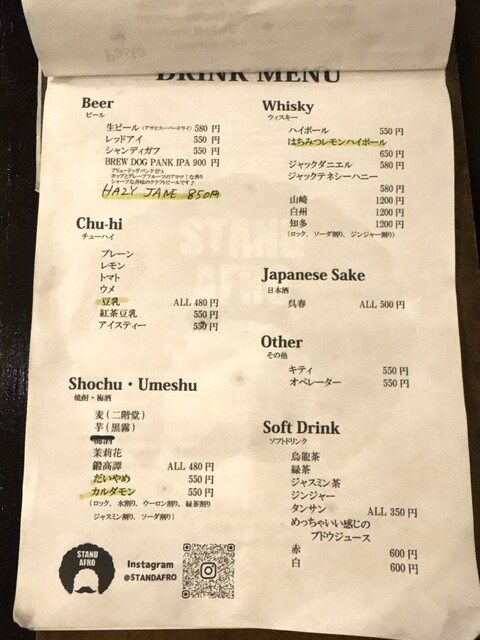 DRINK MENU
Beer
ビール
生ビール(アサヒスーパードライ) 580 円
レッドアイ 550 円
シャンディガフ 550 円
BREW DOG PANK IPA 900 円
ブリュードッグパンクIPA
ホップとグレープフルーツのアロマ!な香り
シャープな苦味のクラフトビールです♪
HAZY JANE 850円
Chu-hi
チューハイ
プレーン
レモン
トマト
ウメ
豆乳 ALL 480 円
紅茶豆乳 550 円
アイスティー 550 円
Shochu・Umeshu
焼酎・梅酒
麦(二階堂)
芋(黒霧)
梅酒
茉莉花
鍛高譚 ALL 480 円
だいやめ 550 円
カルダモン 550 円
(ロック、水割り、ウーロン割り、緑茶割り
ジャスミン割り、ソーダ割り)
STAND
AFRO
Instagram
@STANDAFRO
Whisky
ウィスキー
ハイボール 550 円
はちみつレモンハイボール
650 円
ジャックダニエル 580 円
ジャックテネシーハニー
580 円
山崎 1200 円
白州 1200 円
知多 1200 円
(ロック、ソーダ割り、ジンジャー割り)
Japanese Sake
日本酒
呉春 ALL 500 円
Other
その他
キティ 550 円
オペレーター 550 円
Soft Drink
ソフトドリンク
烏龍茶
緑茶
ジャスミン茶
ジンジャー
タンサン ALL 350 円
めっちゃいい感じの
ブドウジュース
赤 600 円
白 600 円